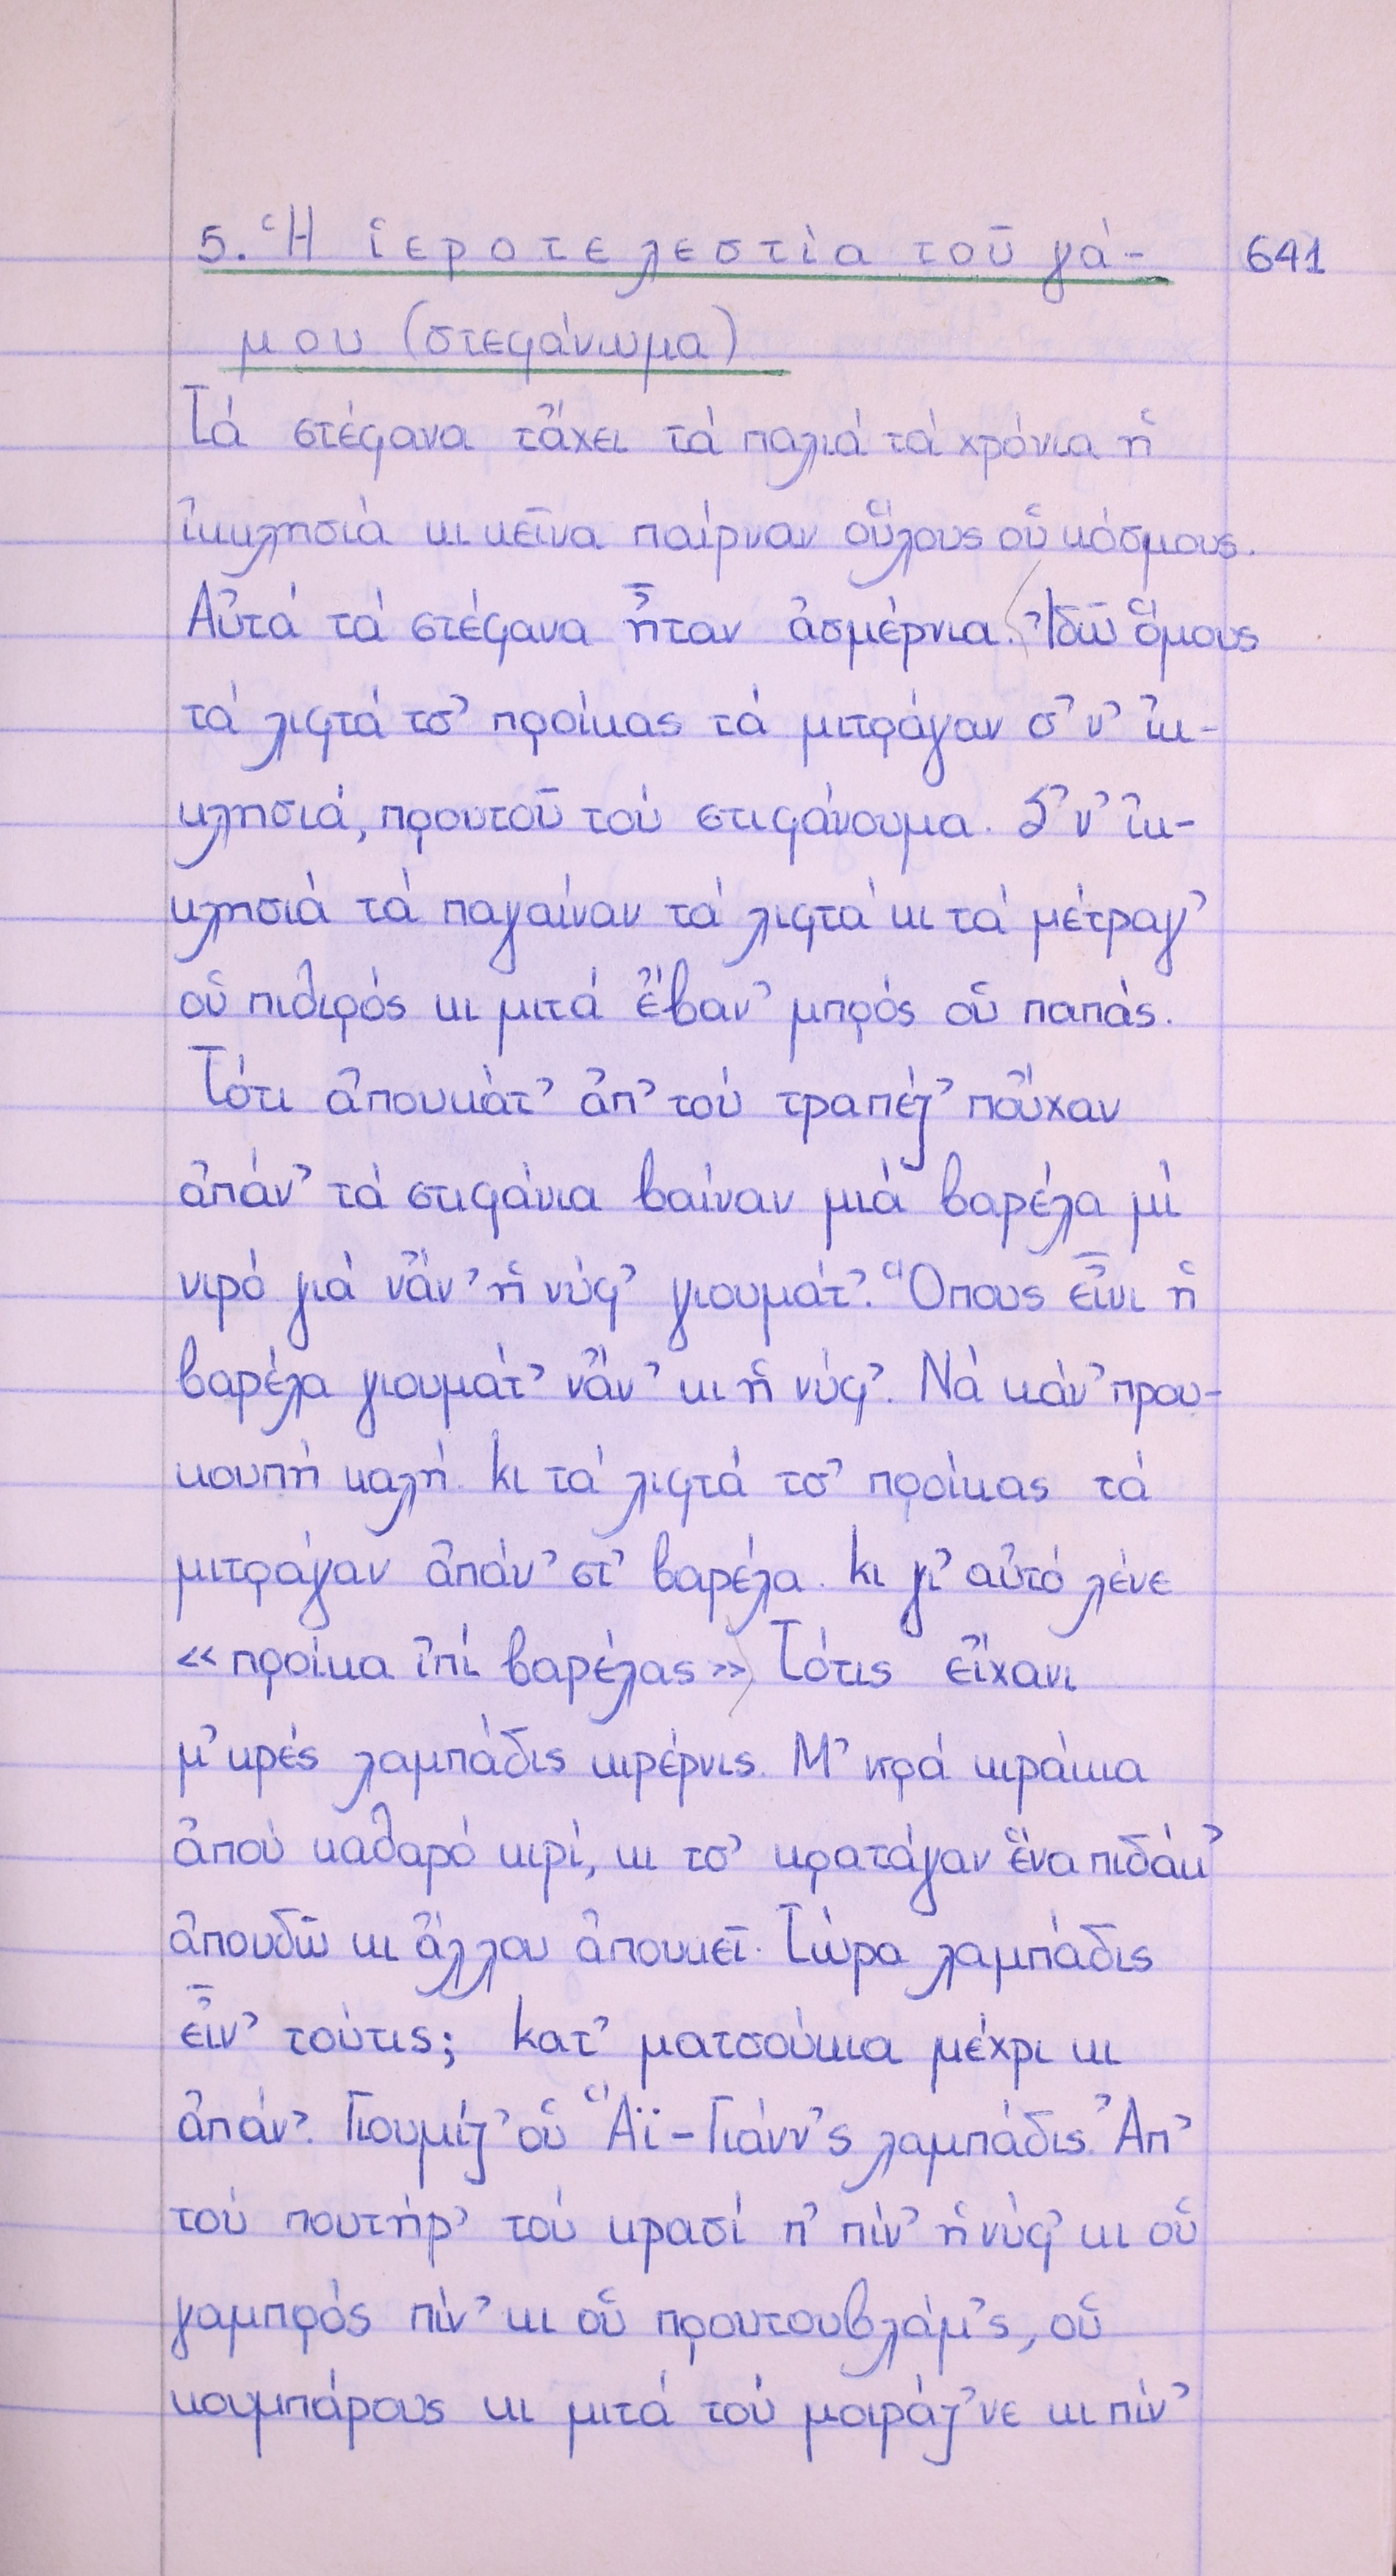 5. Ἡ ἱεροτελεστία τοῦ γά- 641
μου (στεφάνωμα)
Τά στέφανα τἄχει τά παλιά τά χρόνια ἡ
ἰκκλησιά κι κεῖνα παίρναν οὕλους οὑ κόσμους.
Αὐτά τά στέφανα ἦταν ἀσμέρνια. Ἰδῶ ὅμους
τά λιφτά τσ᾿ προίκας τά μιτράγαν σ᾿ ν᾿ ἰκ-
κλησιά, προυτοῦ τού στιφάνουμα. Σ᾿ ν᾿ ἰκ-
κλησιά τά παγαίναν τά λιφτά κι τά μέτραγ᾿
οὑ πιθιρός κι μιτά ἔβαν᾿ μπρός οὑ παπάς.
Τότι ἀπουκάτ᾿ ἀπ᾿ τού τραπέζ᾿ ποὖχαν
ἀπάν᾿ τά στιφάνια βαίναν μιά βαρέλα μί
νιρό γιά νἄν᾿ ἡ νύφ᾿ γιουμάτ᾿. Ὅπους εἶνι ἡ
βαρέλα γιουμάτ᾿ νἄν᾿ κι ἡ νύφ᾿. Νά κάν᾿ πρου-
κουπή καλή. Κι τά λιφτά τσ᾿ προίκας τά
μιτράγαν ἀπάν᾿ στ᾿ βαρέλα. Κι γι᾿ αὐτό λένε
«προίκα ἰπί βαρέλας» Τότις εἴχανι
μ᾿κρές λαμπάδις κιρένις. Μ᾿κρά κιράκια
ἀπού καθαρό κιρί, κι τσ᾿ κρατάγαν ἕνα πιδάκ᾿
ἀπουδῶ κι ἄλλου ἀπουκεῖ. Τώρα λαμπάδις
εἶν᾿ τούτις; Κατ᾿ ματσούκια μέχρι κι
ἀπάν᾿. Γιουμίζ᾿ οὑ Ἅϊ-Γιάνν᾿ς λαμπάδις. Ἀπ᾿
τού πουτήρ᾿ τού κρασί π᾿ πίν᾿ ἡ νύφ᾿ κι οὑ
γαμπρός πίν᾿ κι οὑ προυτουβλάμ᾿ς, οὑ
κουμπάρους κι μιτά τού μοιράζ᾿νε κι πίν᾿